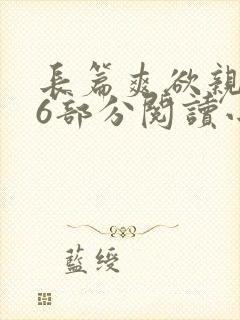 長篇爽欲親
6部分閱讀小
藍綬